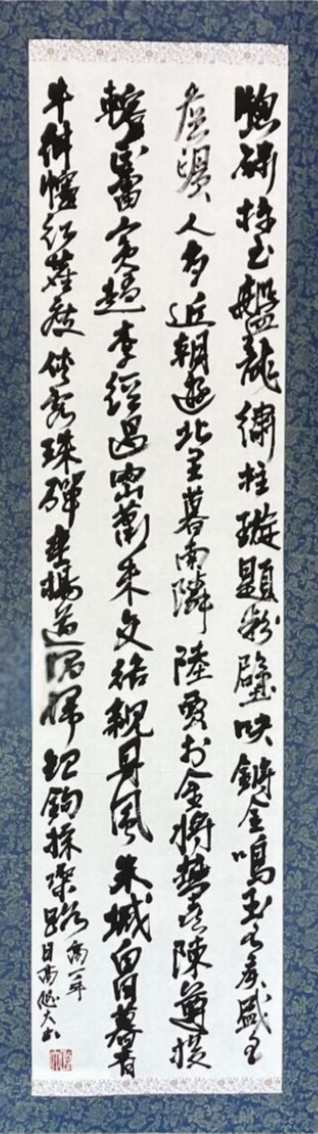 窓繡柱玉盤龍繡柱璇題粉壁映鏘金鳴玉王侯盛王
侯貴人多近朝遊北里暮南隣陸賈分金將讌喜陳遵投
轄正留賓趙李經過密蕭朱交結親丹鳳朱城白日暮青
牛紺幰紅塵度俠客珠彈垂楊道倡婦銀鉤採桑路